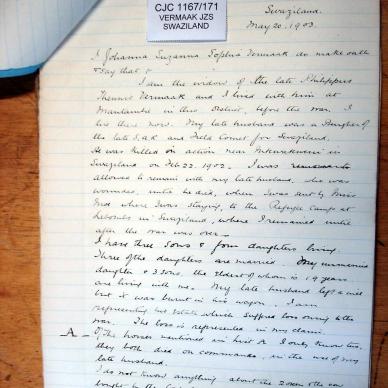 CJC 1167/171
VERMAAK JZS
SWAZILAND
Swaziland.
May 20. 1903.
I Johanna Suzanna Sophia Vermaak do make oath
& say that :
I am the widow of the late Philippus
Theunis Vermaak and I lived with him at
in this District, before the war. I
live there now. My late husband was a Burgher of
the late S.A.R and Field Cornet for Swaziland.
He was killed in action near
Swaziland on Feb 22. 1902. I was
allowed to remain with my late husband, who was
wounded, until he died, when I was sent by
where I was staying, to the Refugee Camp at
in Swaziland, where I remained until
after the war was over.
I have three sons & four daughters living
Three of the daughters are married. My unmarried
daughter & 3 sons, the eldest of whom is 19 years
are living with me. My late husband left a will
but it was burnt in his wagon. I am
representing his Estate which suffered loss owing to the
war. The loss is represented in my claim.
A - Of the horses mentioned in list A I only know two,
they both died on commando, in the use of my
late husband.
I do not know anything about the 2 oxen